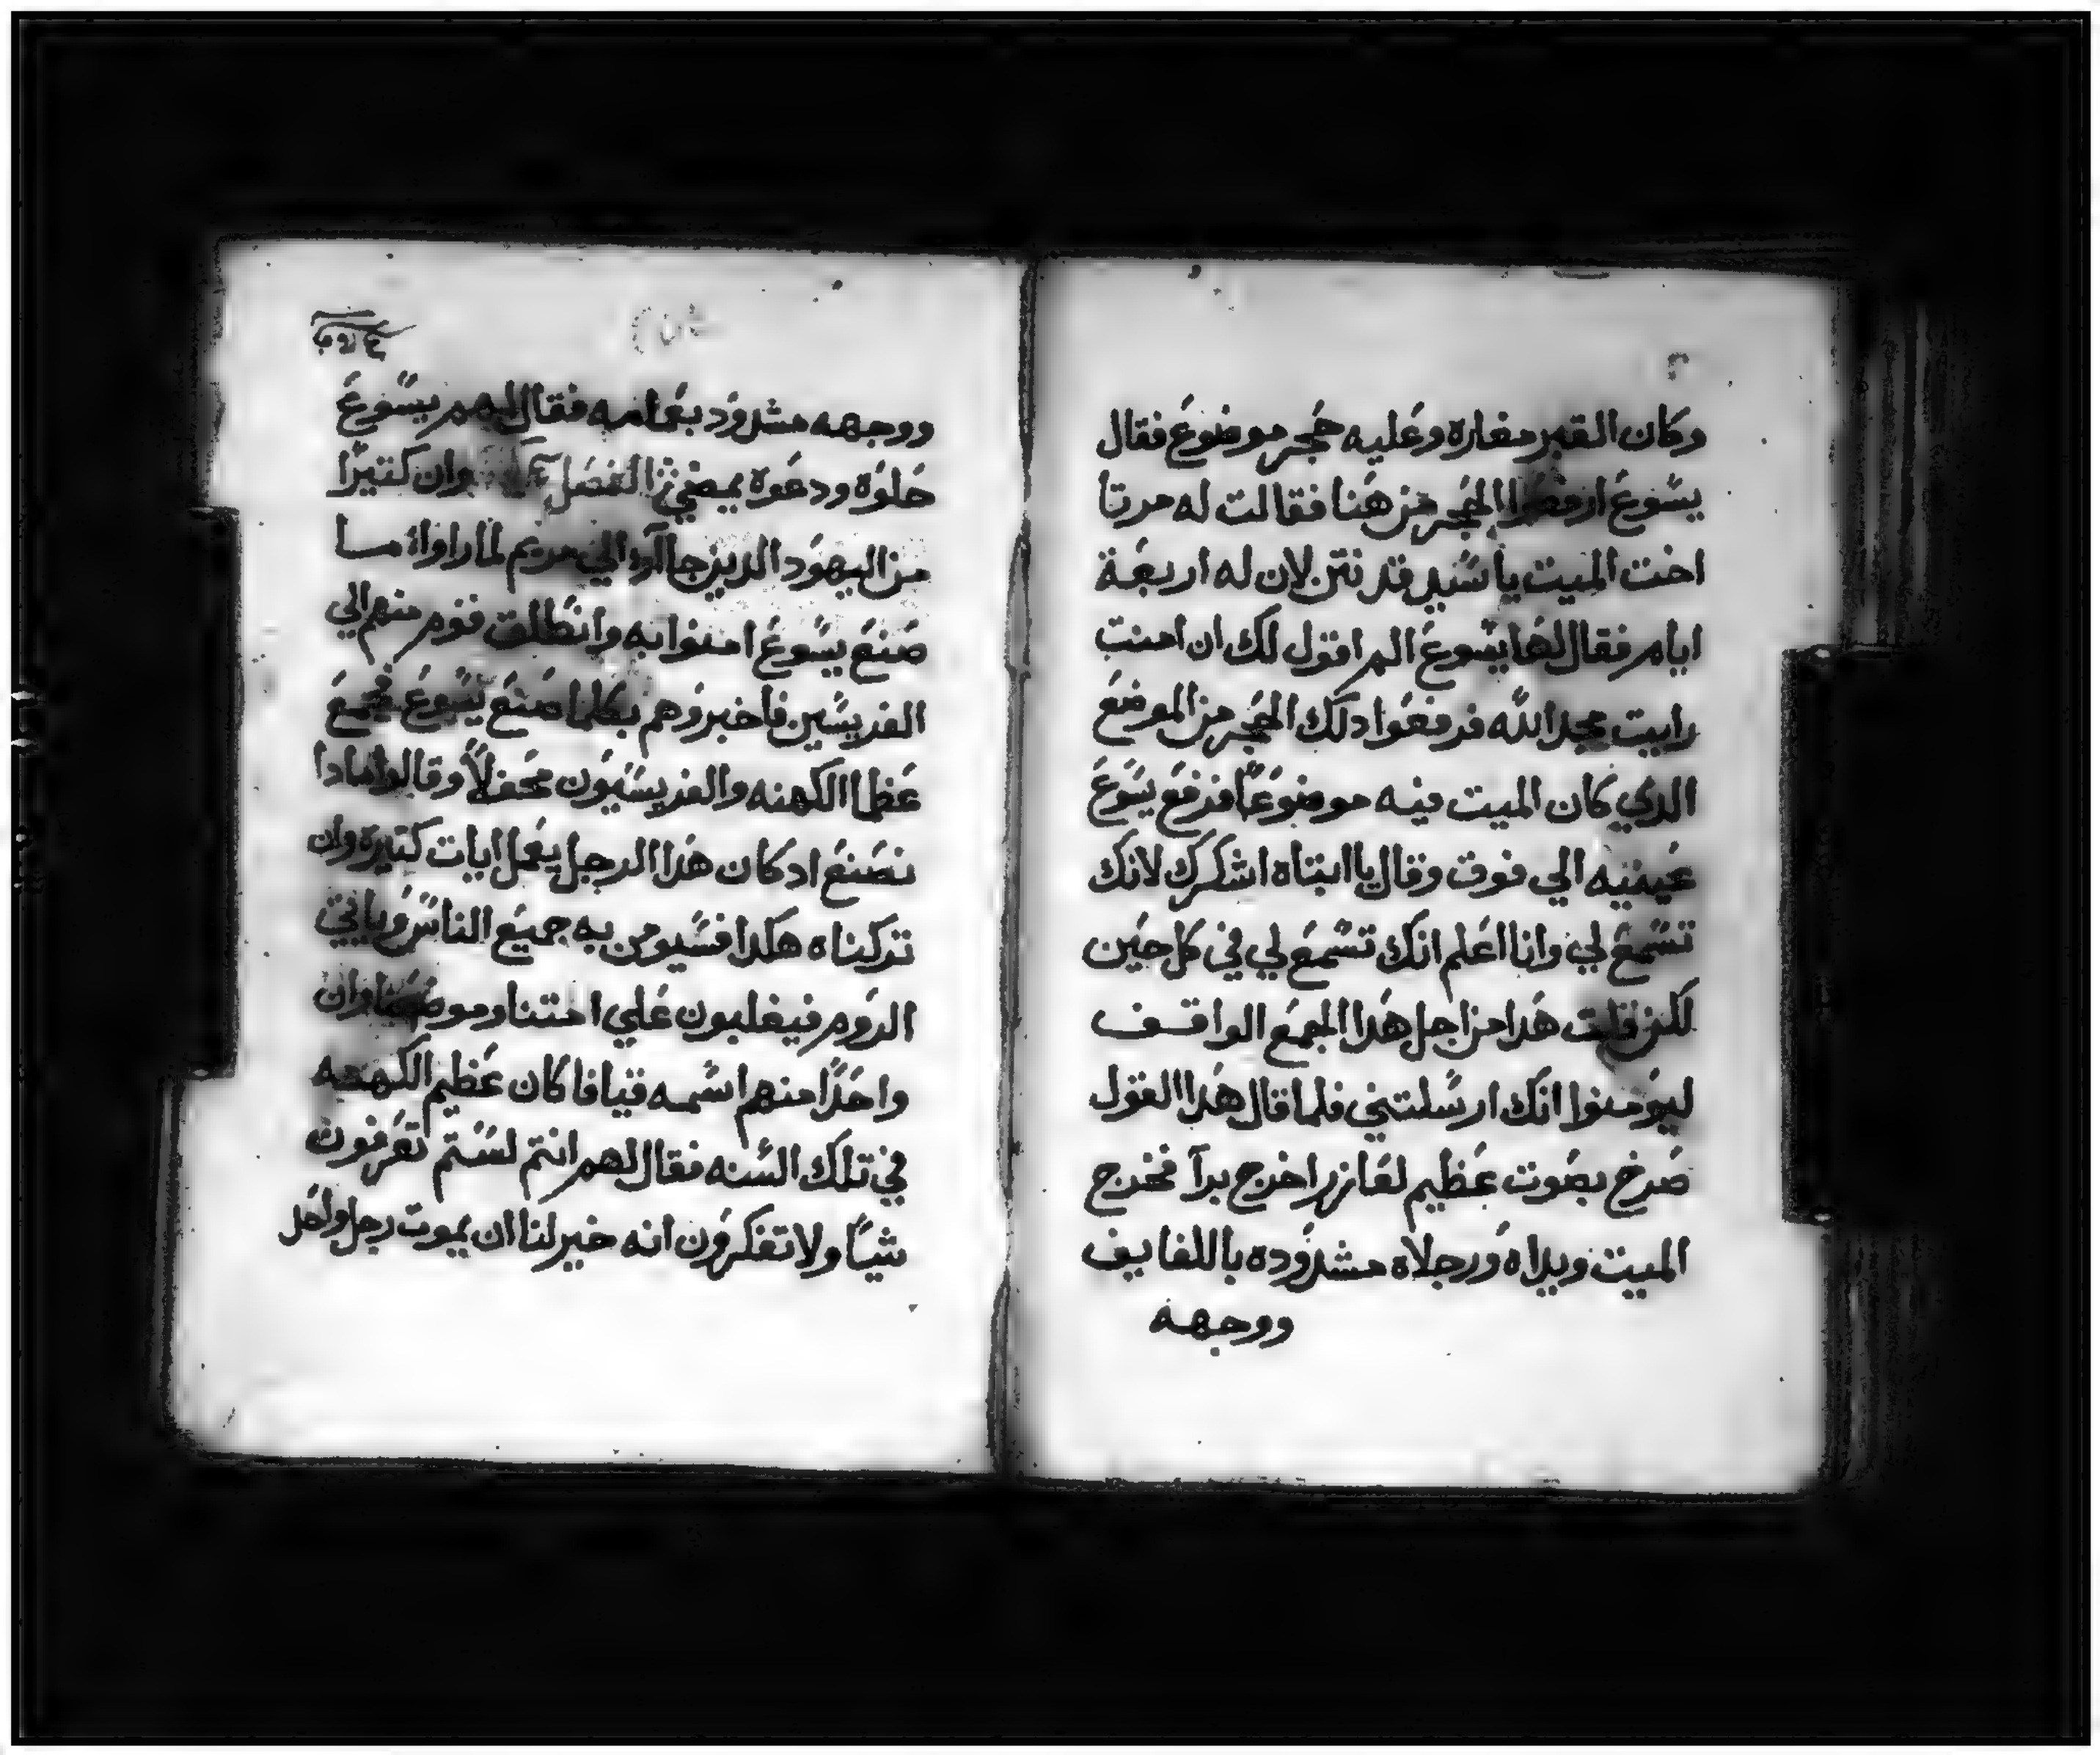 وكان القبر مغاره وعليه حجر موضوع فقال
يسوع ارفعوا الحجر من هنا فقالت له مرتا
اخت الميت يا سيد قد نتن لان له اربعة
ايام فقال لها يسوع الم اقول لك ان امنت
رايت مجد الله فرفعوا دلك الحجر من الموضع
الدي كان الميت فيه موضوعًا فرفع يسوع
عينيه الي فوق وقال يا ابتاه اشكرك لانك
تسمع لي وانا اعلم انك تسمع لي في كل حين
لكن قلت هدا من اجل هدا الجمع الواقف
ليومنوا انك ارسلتني فلما قال هدا القول
صرخ بصوت عظيم لعازر اخرج برآ فخرج
الميت ويداه ورجلاه مشدوده باللفايف
ووجهه
ووجهه مشدود بعمامه فقال لهم يسوع
حلوه ودعوه يمضي الفصل وان كتيرًا
من اليهود الدين جاآوا الي مريم لما راوا ما
صنع يسوع امنوا به وانطلق قوم منهم الي
الفريسين فاخبروهم بكلما صنع يسوع فجمع
عظما الكهنه والفريسيون محفلاً وقالوا مادا
نصنع اد كان هدا الرجل يعمل ايات كتيره وان
تركناه هكدا فسيومن به جميع الناس وياتي
الروم فيغلبون علي امتنا وموضعنا وان
واحدًا منهم اسمه قيافا كان عظيم الكهنه
في تلك السنه فقال لهم انتم لستم تعرفون
شيًا ولا تفكرون انه خير لنا ان يموت رجل واحد